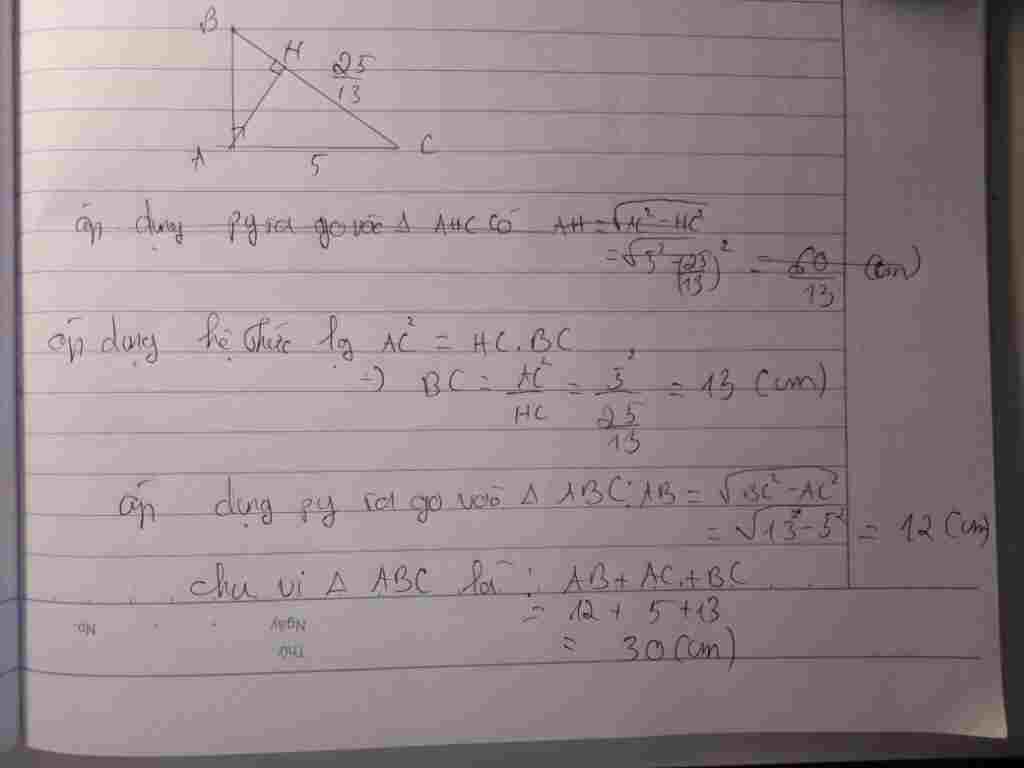 B
H
25/13
A
5
C
áp dụng py ta go vào Δ AHC có AH = √(AC² - HC²)
= √(5² - (25/13)²) = 60/13 (cm)
áp dụng hệ thức lg AC² = HC.BC
=> BC = AC²/HC = 5²/(25/13) = 13 (cm)
áp dụng py ta go vào Δ ABC: AB = √(BC² - AC²)
= √(13² - 5²) = 12 (cm)
chu vi Δ ABC là : AB + AC + BC
= 12 + 5 + 13
= 30 (cm)
No.
Ngày
Thứ